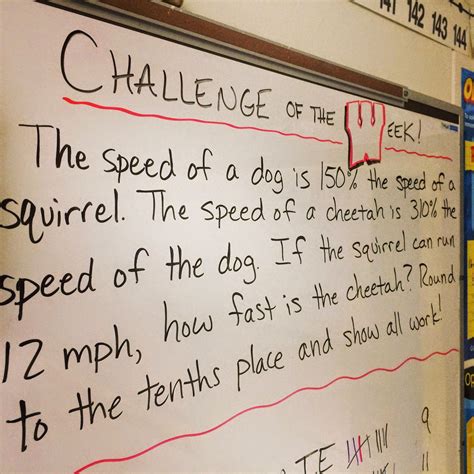 141 142 143 144
CHALLENGE OF THE WEEK!
The speed of a dog is 150% the speed of a
squirrel. The speed of a cheetah is 310% the
speed of the dog. If the squirrel can run
12 mph, how fast is the cheetah? Round
to the tenths place and show all work!
9
8